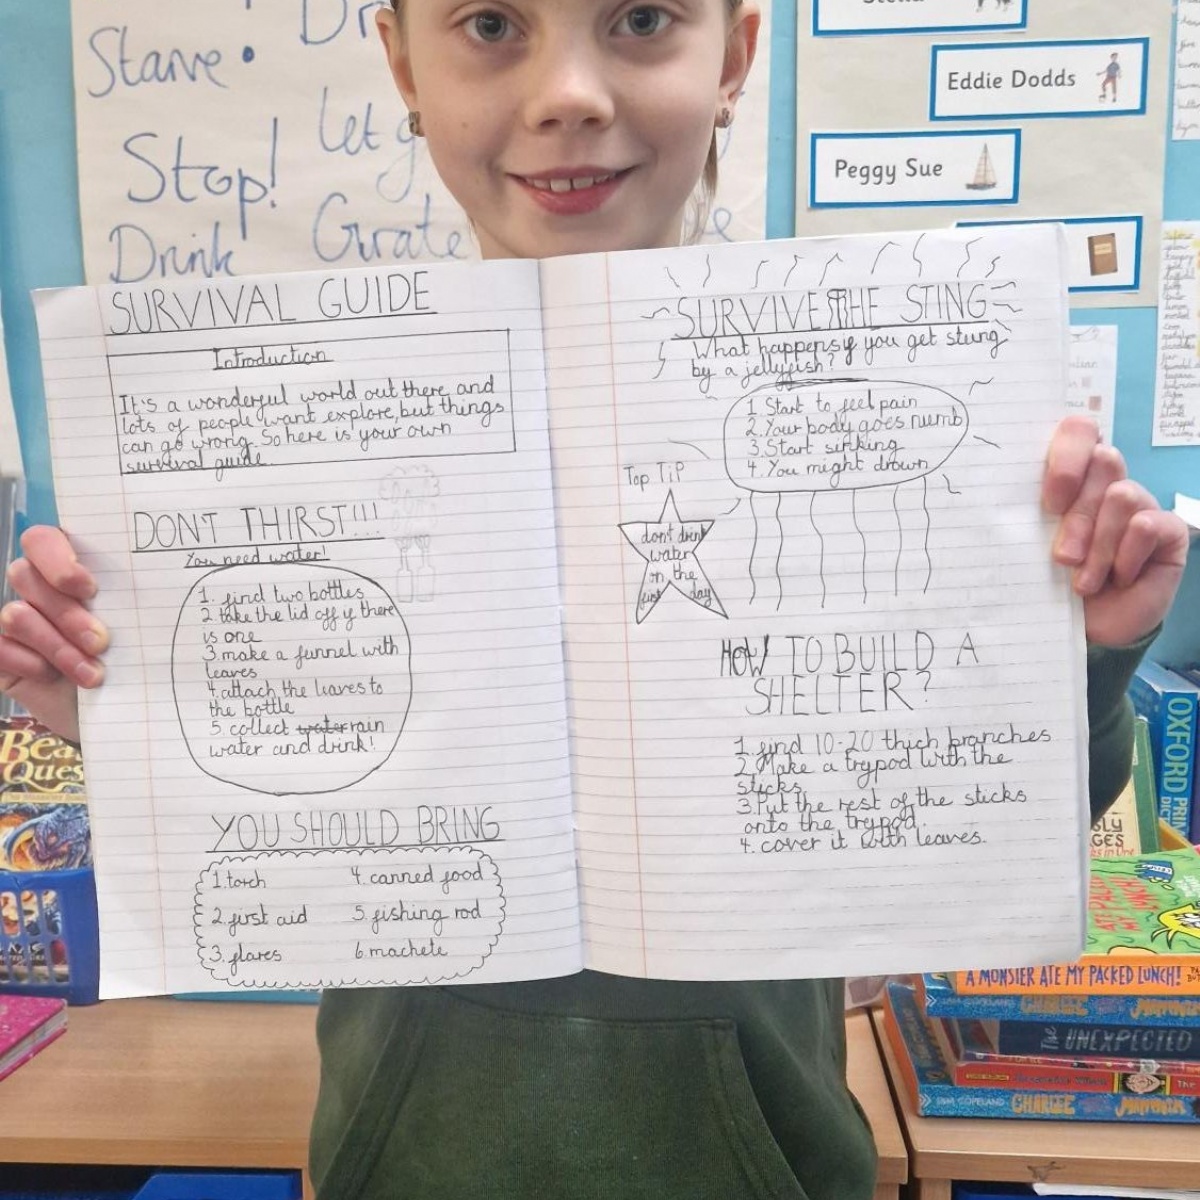 Starve!
Stop!
Drink
Eddie Dodds
Peggy Sue
SURVIVAL GUIDE
Introduction
It's a wonderful world out there, and
lots of people want explore, but things
can go wrong. So here is your own
survival guide
DON'T THIRST!!!
You need water!
1. find two bottles
2. take the lid off if there
is one
3. make a funnel with
leaves
4. attach the leaves to
the bottle
5. collect water rain
water and drink!
YOU SHOULD BRING
1. torch
2. first aid
3. flares
4. canned food
5. fishing rod
6. machete
SURVIVE THE STING
What happens if you get stung
by a jellyfish?
1. Start to feel pain
2. Your body goes numb
3. Start sinking
4. You might drown
Top Tip
don't drink
water
on the
first day
HOW TO BUILD A
SHELTER?
1. find 10-20 thich branches
2. Make a trypod with the
sticks
3. Put the rest of the sticks
onto the trypod.
4. cover it with leaves.
OXFORD
A MONSTER ATE MY PACKED LUNCH!
THE UNEXPECTED